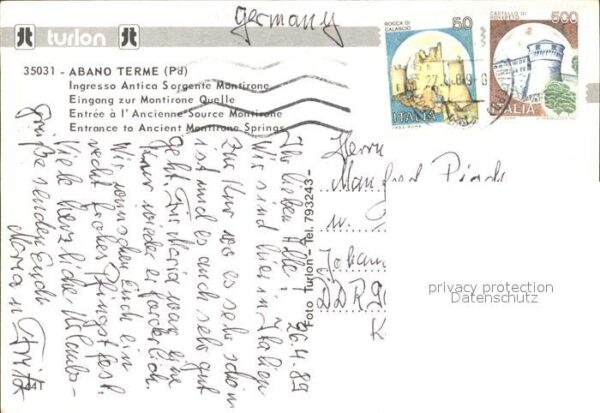 Germany
turlon
35031 - ABANO TERME (Pd)
Ingresso Antica Sorgente Montirone
Eingang zur Montirone Quelle
Entrée à l'Ancienne Source Montirone
Entrance to Ancient Montirone Springs
ROCCA DI CALASCIO
50
ITALIA
CASTELLO DI ROVERETO
500
ITALIA
26.4.89
Ihr lieben Alle!
Wir sind hier in Italien
zur Kur wo es sehr schön
ist und es auch sehr gut
geht. Für Maria war eine
Kur wieder erforderlich.
Wir wünschen Euch ein
recht frohes Pfingstfest.
Viele herzliche Urlaubs-
grüße senden Euch
Maria u Fritz
Foto Turlon - Tel. 793243
Herrn
Manfred
u.
DDR
K
privacy protection
Datenschutz